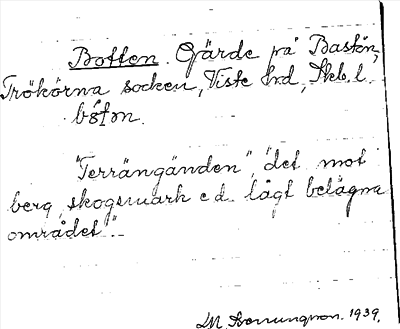 Botten. Gärde på Baskön,
Trökörna socken, Viste hrd, Skb. l.
bǫ́tn.
"Terrängänden", "det mot
berg, skogsmark e.d. lågt belägna
området".
1939.